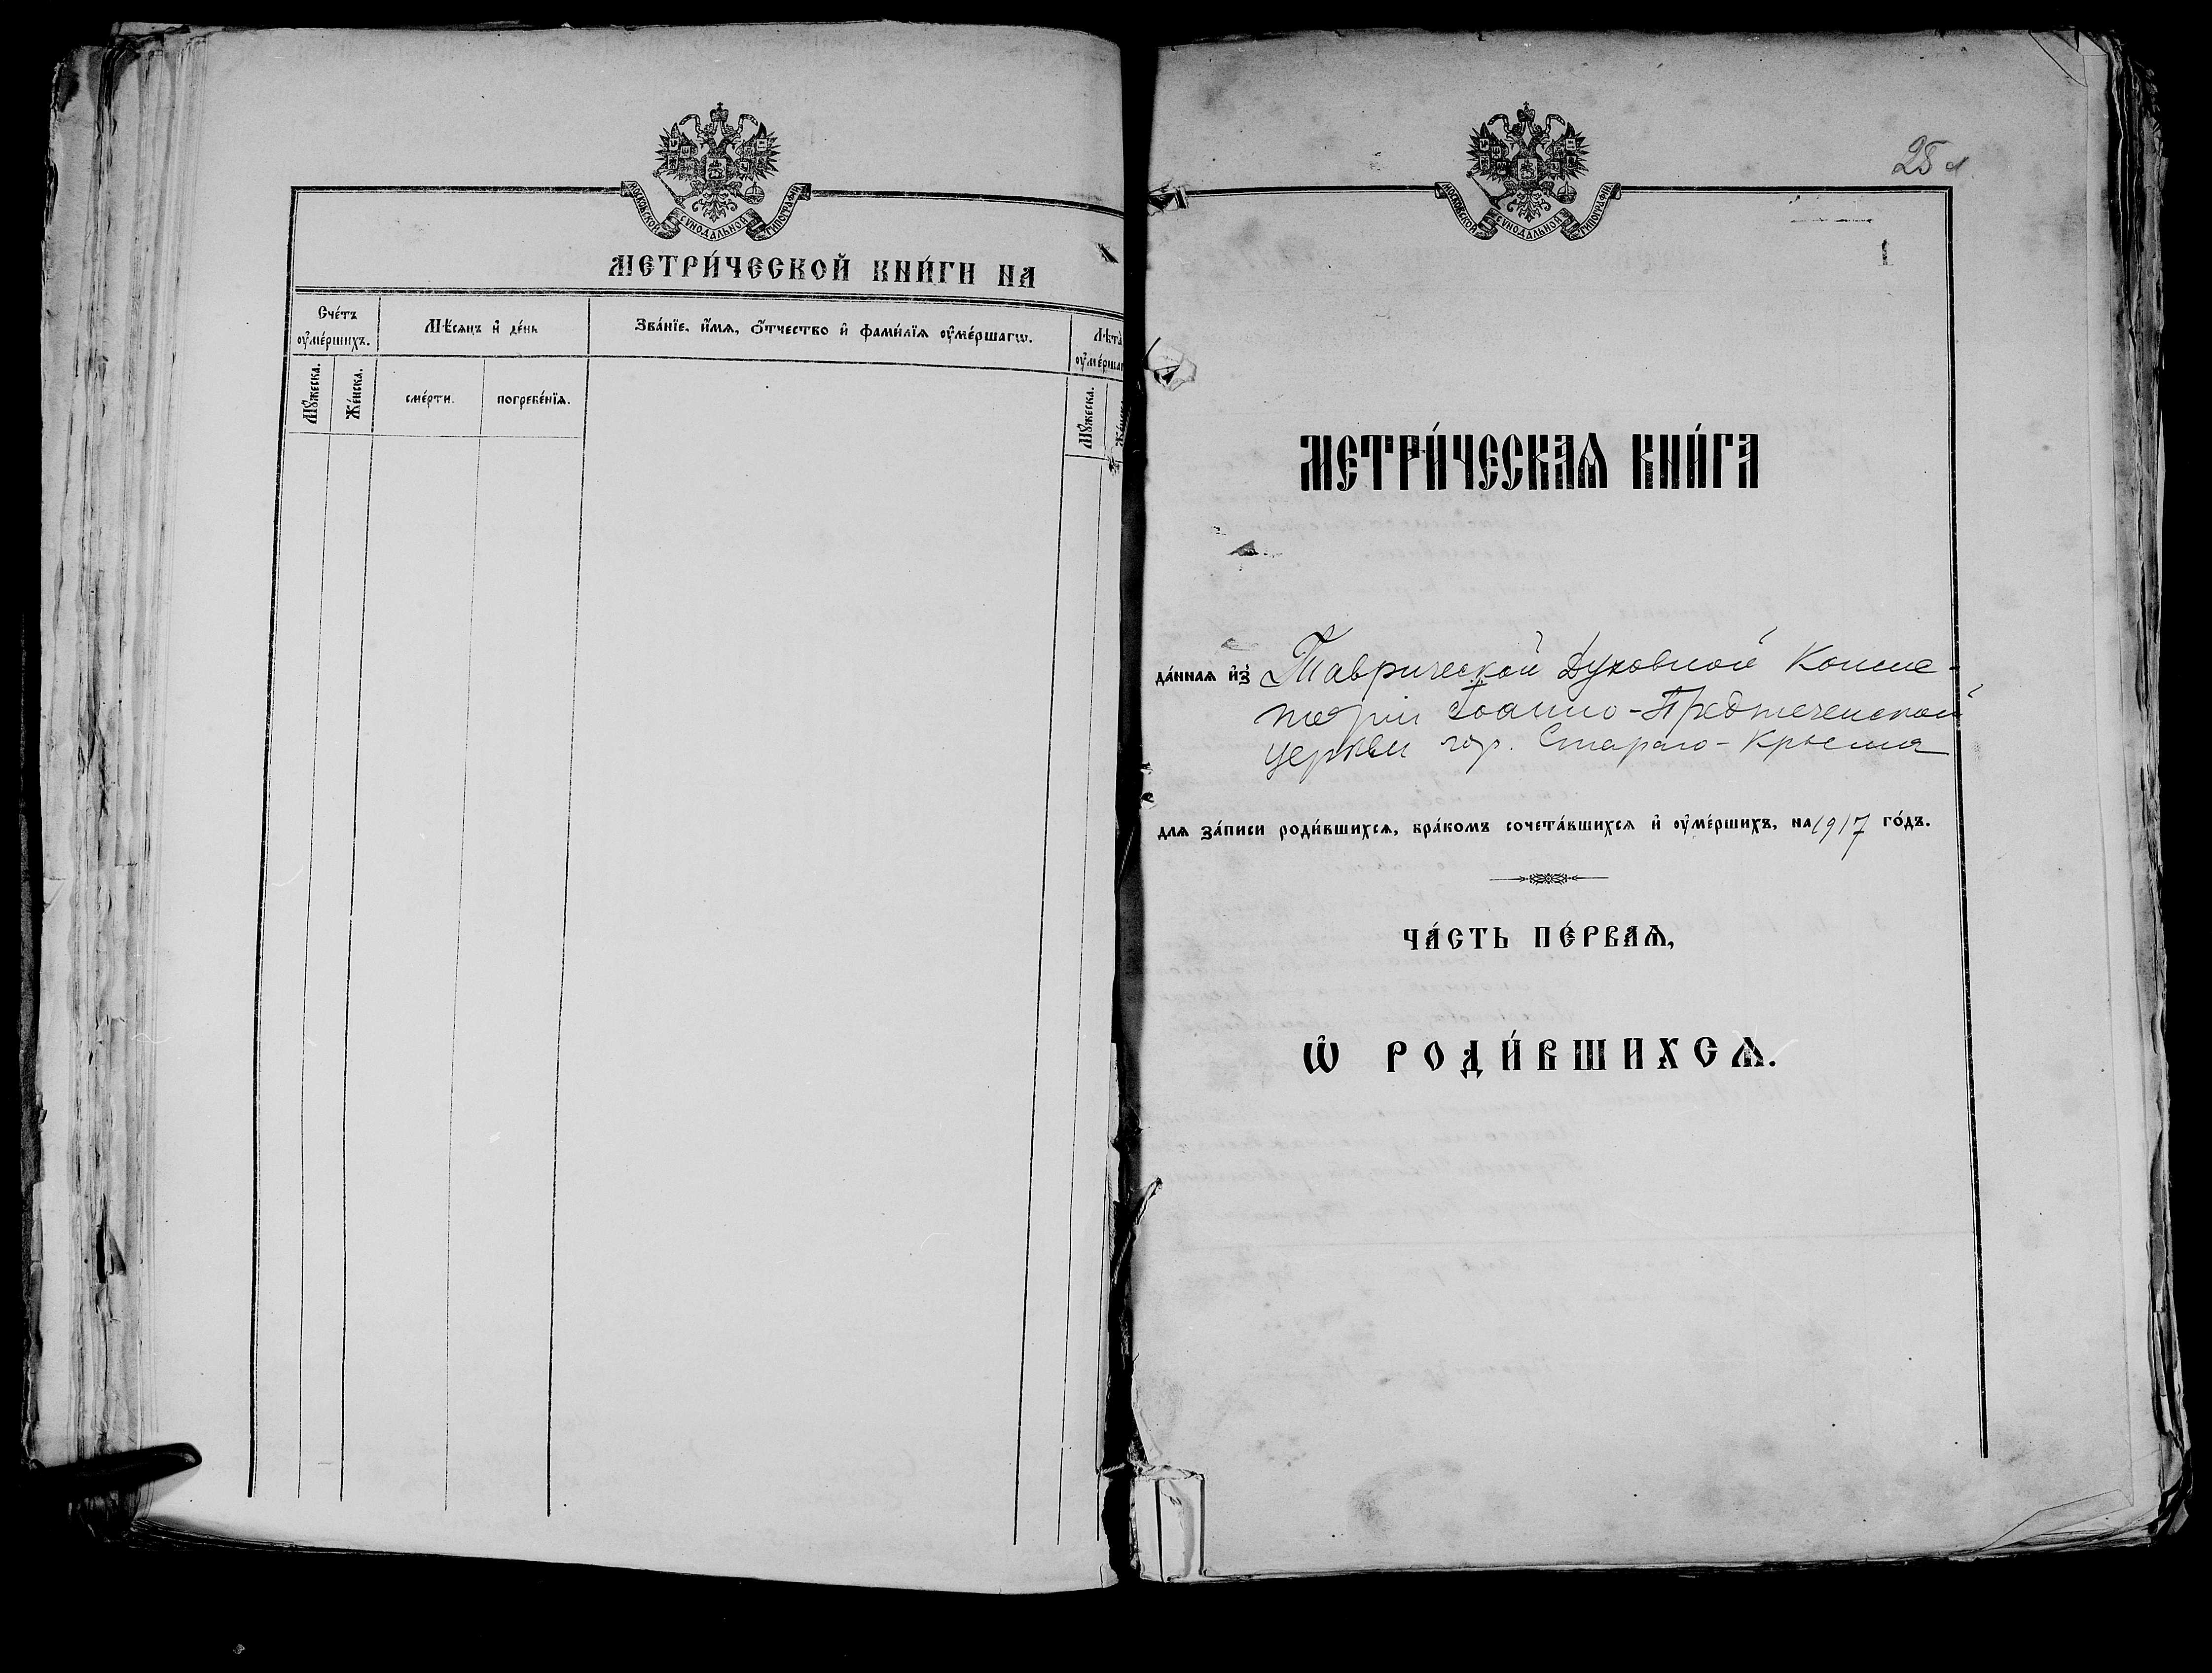 МОСКОВСКОЙ СѴНОДАЛЬНОЙ ТИПОГРАФІИ
МЕТРИ́ЧЕСКОЙ КНИ́ГИ НА
Сче́тъ
оу҆ме́ршихъ.
Мѣ́сяцъ и҆ де́нь
Зва́нїе, и҆́мѧ, ѻ҆́тчество и҆ фами́лїѧ оу҆ме́ршагѡ.
Лѣ́та
оу҆ме́рша
Мꙋ́жеска.
Же́нска.
сме́рти.
погребе́нїѧ.
Мꙋ́жеска.
МОСКОВСКОЙ СѴНОДАЛЬНОЙ ТИПОГРАФІИ
1
МЕТРИ́ЧЕСКАѦ КНИ́ГА
да́ннаѧ и҆з̾ Таврической Духовной Консис-
торіи Іоанно-Предтеченской
церкви гор. Стараго-Крыма
для за́писи роди́вшихсѧ, бра́комъ сочета́вшихсѧ и҆ оу҆ме́ршихъ, на 1917 го́дъ.
ЧА́СТЬ ПЕ́РВАѦ,
Ѡ҆ РОДИ́ВШИХСѦ.